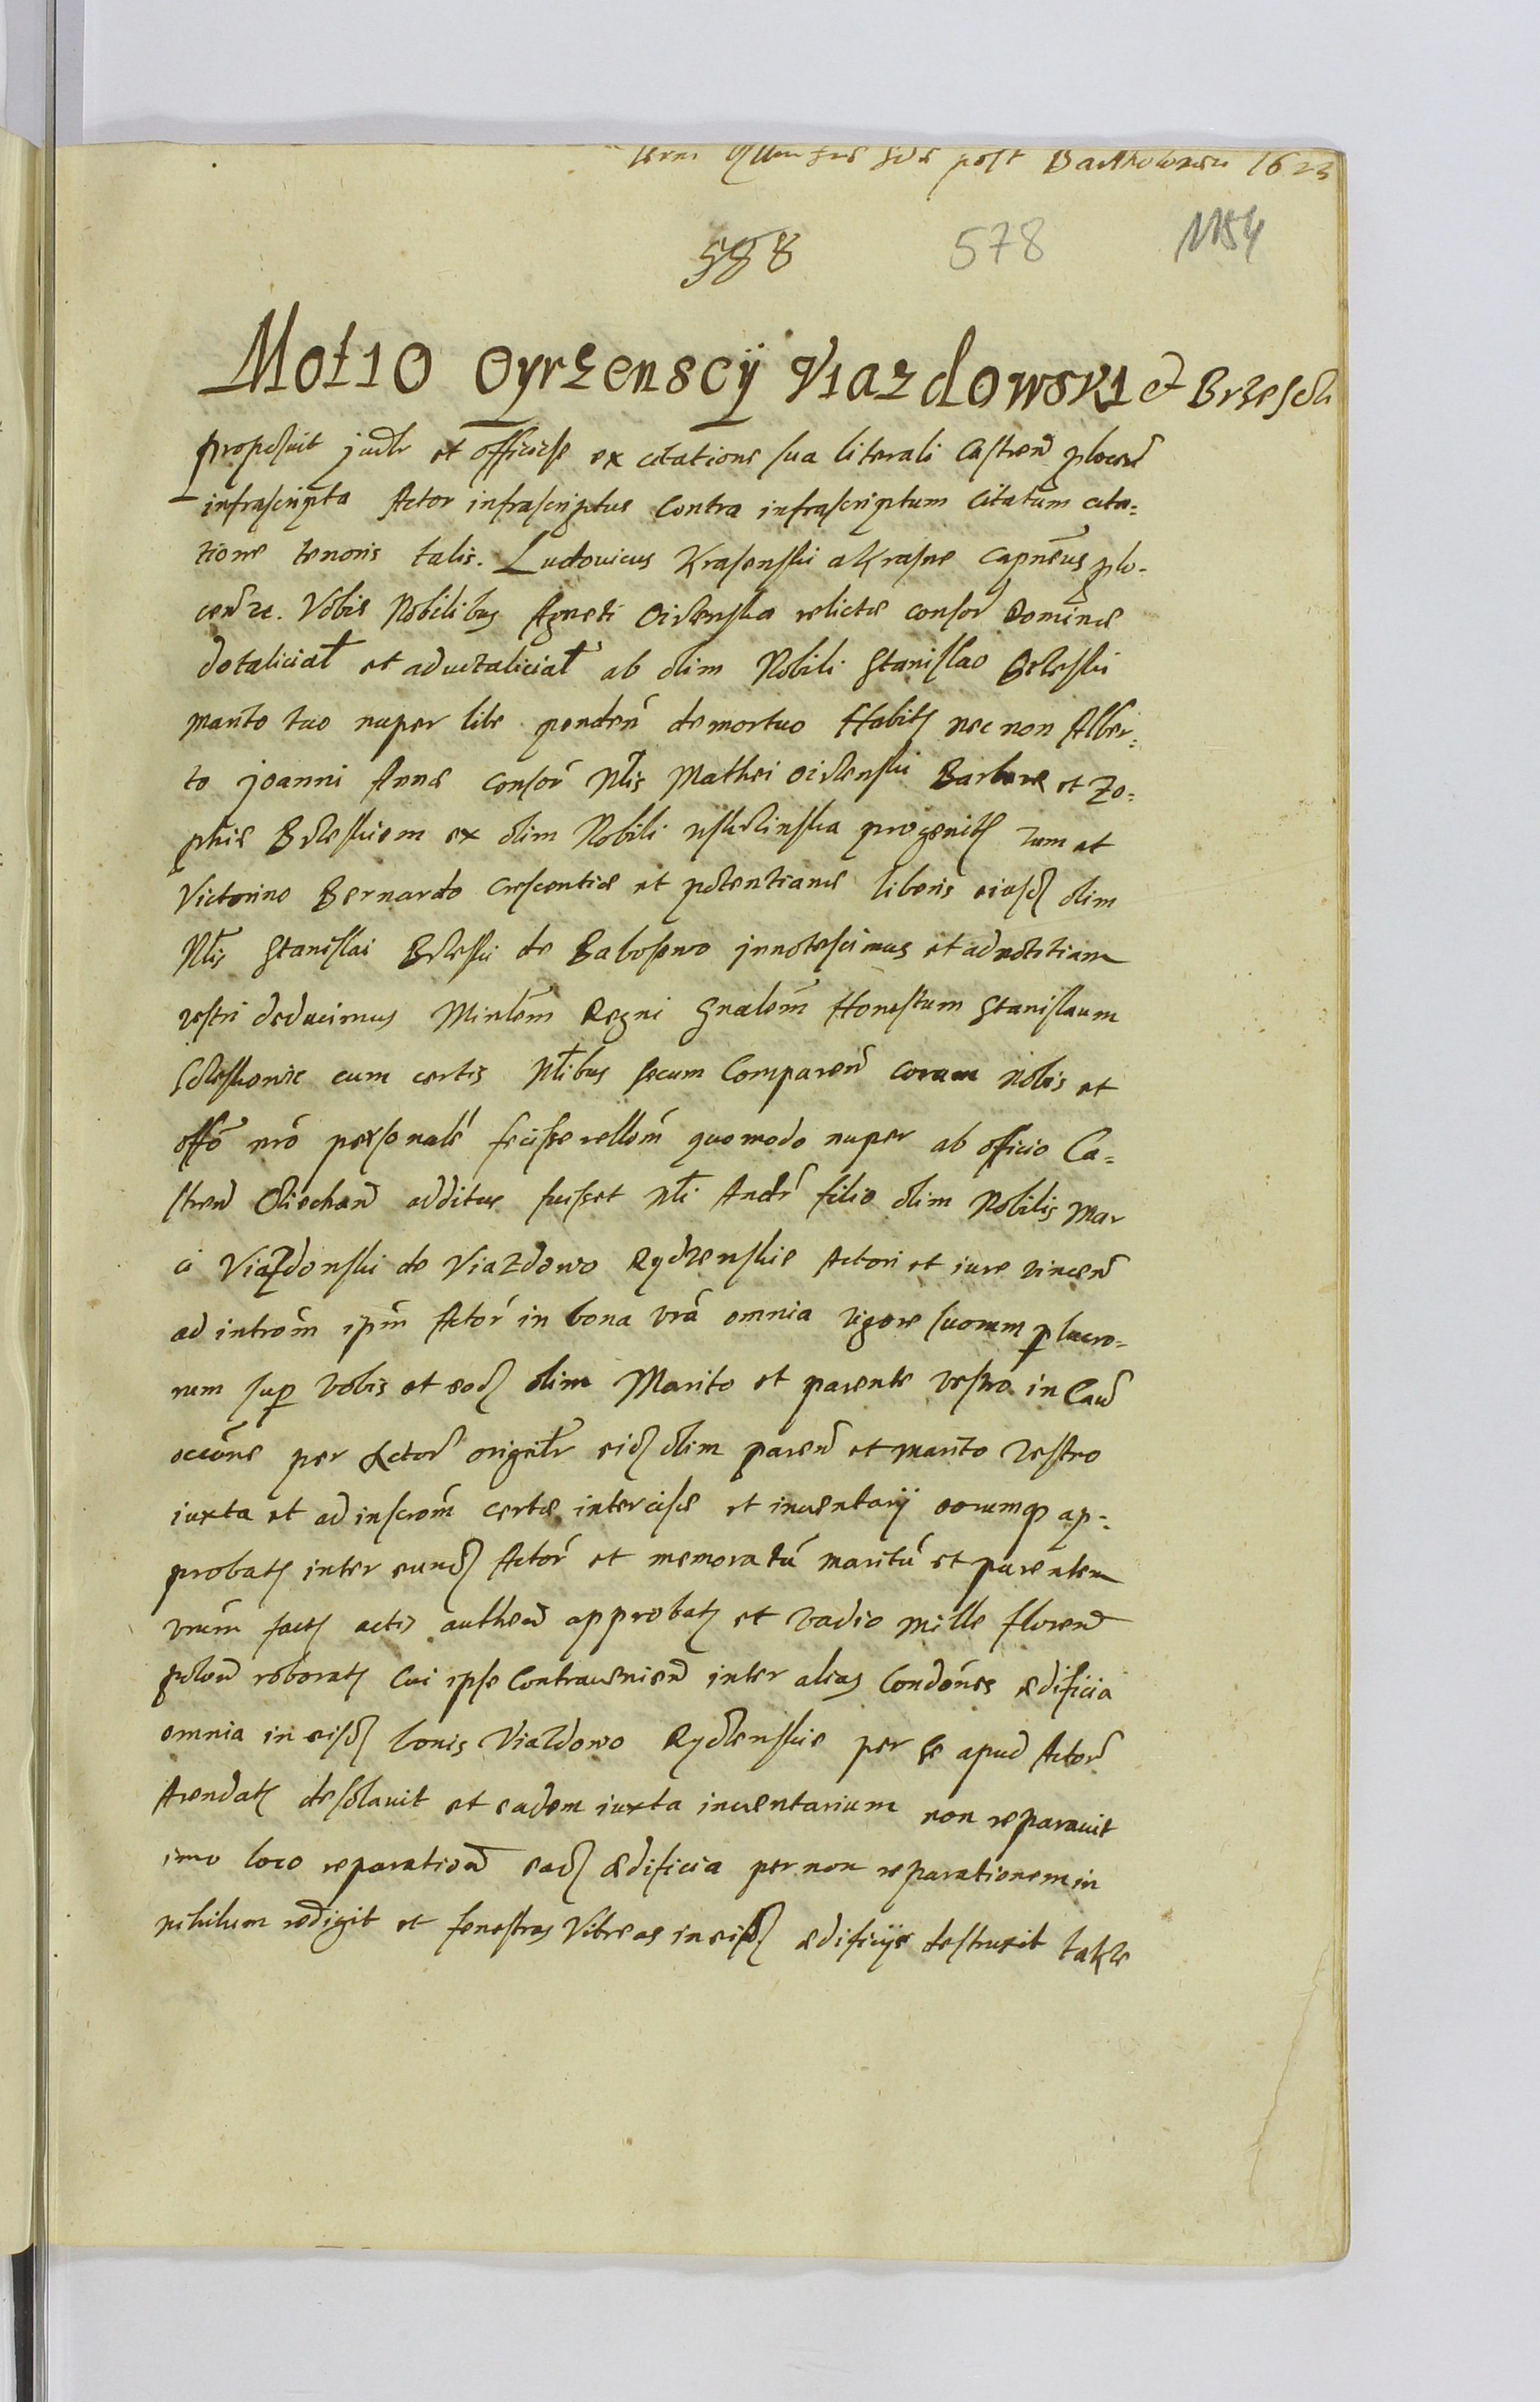 post Bartholomeu 1623
588 578 1154
Motio Oyrzenscÿ Viazdowski et Brzeski
proposuit judlr et officiose ex citatione sua literali Castren plocen
infrascripta Actor infrascriptus Contra infrascriptum Citatum cita=
tione tenoris talis. Ludovicus Krasenski a Krasne Capneus plo=
cen etc. Vobis Nobilibus Agneti relictae consor Dominae
dotaliciali et aduitaliciali ab olim Nobili Stanislao Brzeski
marito tuo nuper lite penden demortuo Habits nec non Alber=
to joanni Annae consor Nlis Mathei Barbarae et Zo=
phie ex olim Nobili progenits tum et
Victorino Bernardo Crescentiae et potentianae liberis eiusd olim
Nlis Stanislai Brzeski de Baboszewo jnnotescimus et ad notitiam
vestri deducimus Minlem Regni Gnalem Honestum Stanislaum
cum certis Nlibus secum Comparen coram Nobis et
offo nro personale fecisse rellom quomodo nuper ab officio Ca=
stren Ciechan additus fuisset Nli Andr filio olim Nobilis Mar
ci Viazdonski de Viazdowo Rydzenskie Actori et iure vincen
ad introm ipm Actor in bona vra omnia vigore suorum p lucro=
rum sup vobis et eod olim Marito et parente vestro in Cau
occone per Actor originlr eid olim paren et marito vestro
iuxta et ad inscrom certae intercisae et inuentarij eorumq ap=
probats inter eund Actor et memoratu maritu et parentem
vrum facts actis authen approbats et vadio mille floren
polon roborats Cui ipse Contravenien inter alias Condones aedificia
omnia in eisd bonis Viazdowo Rydzenskie per se apud Actor
Arendats desolauit et eadem iuxta inuentarium non reparauit
imo loco reparation ead aedificia per non reparationem in
nihilum redigit et fenestras Vitreas in eisd aedificijs destruxit takze